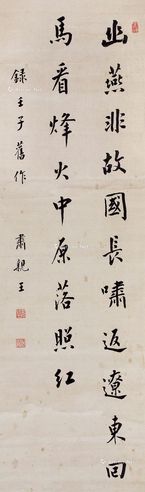 幽燕非故國長嘯返遼東回
馬看烽火中原落照紅
錄壬子舊作　肅親王